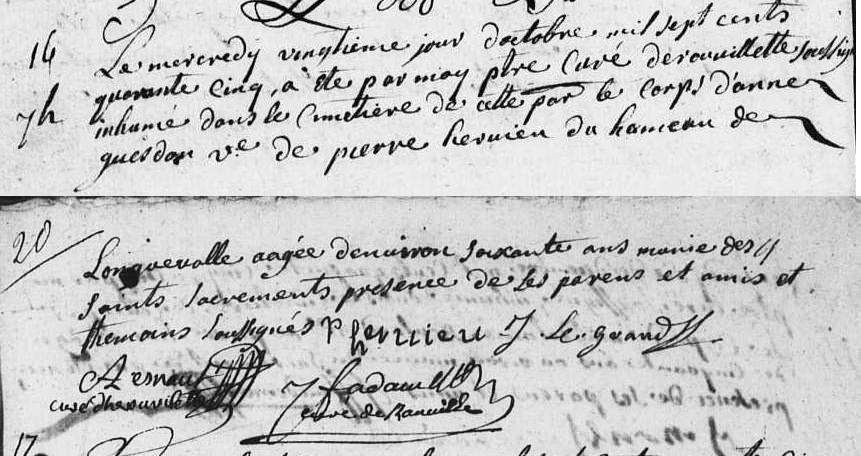 16 Le mercredy vingtieme jour doctobre mil sept cents
quarante cinq, a ete par moy ptre Curé derouvillette soussig
7h inhumé dans le Cimetiere de cette par le Corps d'anne
guesdon ve de pierre hervieu du hameau de
20
Longuevalle aagée denuiron soixante ans munie des
saints sacrements presence de ses parens et amis et
themoins soussignés P hervieu J Le grand
curé dherouvillette
curé de Ranville
17